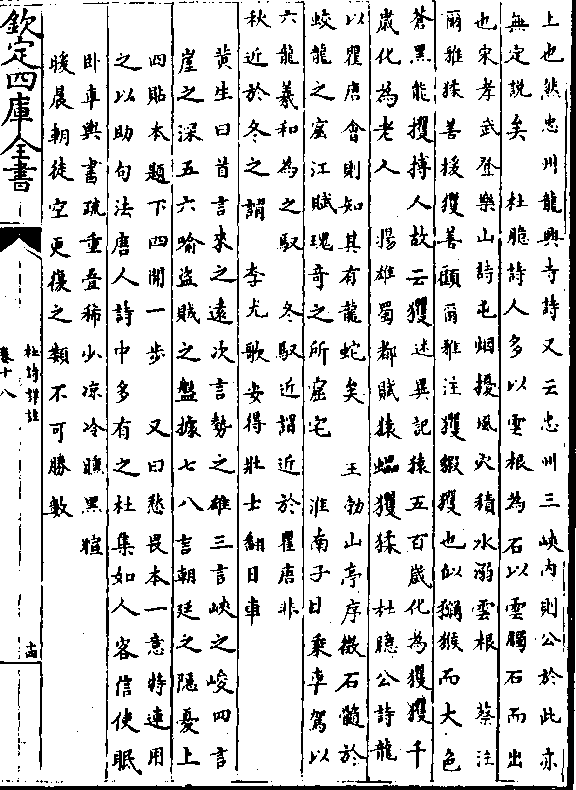 上也然忠州龍興寺詩又云忠州三峽内則公於此亦
無定說矣　杜臆詩人多以雲根為石以雲觸石而出
也宋孝武登樂山詩屯烟擾風穴積水溺雲根　蔡注
爾雅猱善援玃善顧爾雅注玃貑玃也似獼猴而大色
蒼黑能攫搏人故云玃述異記猿五百歲化為玃玃千
歲化為老人　揚雄蜀都賦猿蠝玃猱　杜臆公詩龍
以瞿唐會則知其有龍蛇矣　王勃山亭序徵石髓於
蛟龍之窟江賦瑰奇之所窟宅　淮南子曰乘車駕以
六龍羲和為之馭　冬馭近謂近於瞿唐非
秋近於冬之謂　李尤歌安得壯士翻日車
黄生曰首言來之遠次言勢之雄三言峽之峻四言
崖之深五六喻盜賊之盤據七八言朝廷之隱憂上
四貼本題下四開一步　又曰愁畏本一意特連用
之以助句法唐人詩中多有之杜集如人客信使眠
卧車輿書疏重叠稀少凉冷曛黑暄
暖晨朝徒空更復之類不可勝數
欽定四庫全書
杜詩詳註
卷十八